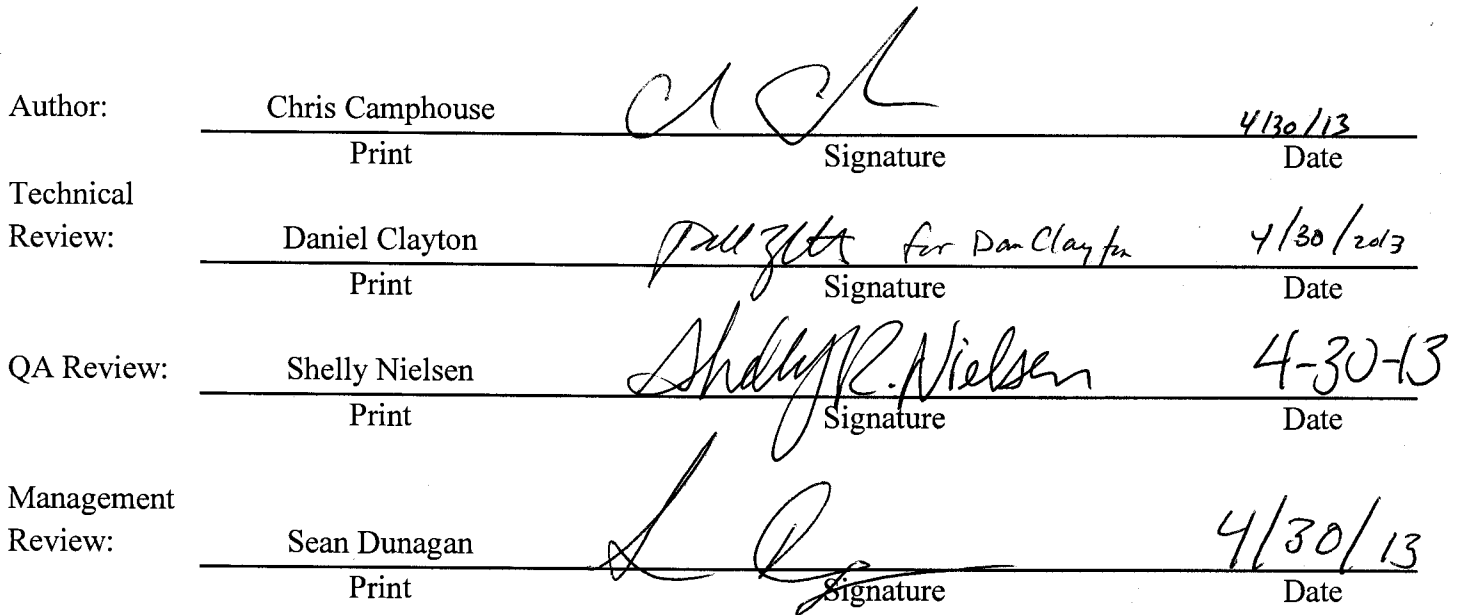 Author: Chris Camphouse 4/30/13
Print Signature Date
Technical
Review: Daniel Clayton for Dan Clayton 4/30/2013
Print Signature Date
QA Review: Shelly Nielsen Shelly R. Nielsen 4-30-13
Print Signature Date
Management
Review: Sean Dunagan 4/30/13
Print Signature Date